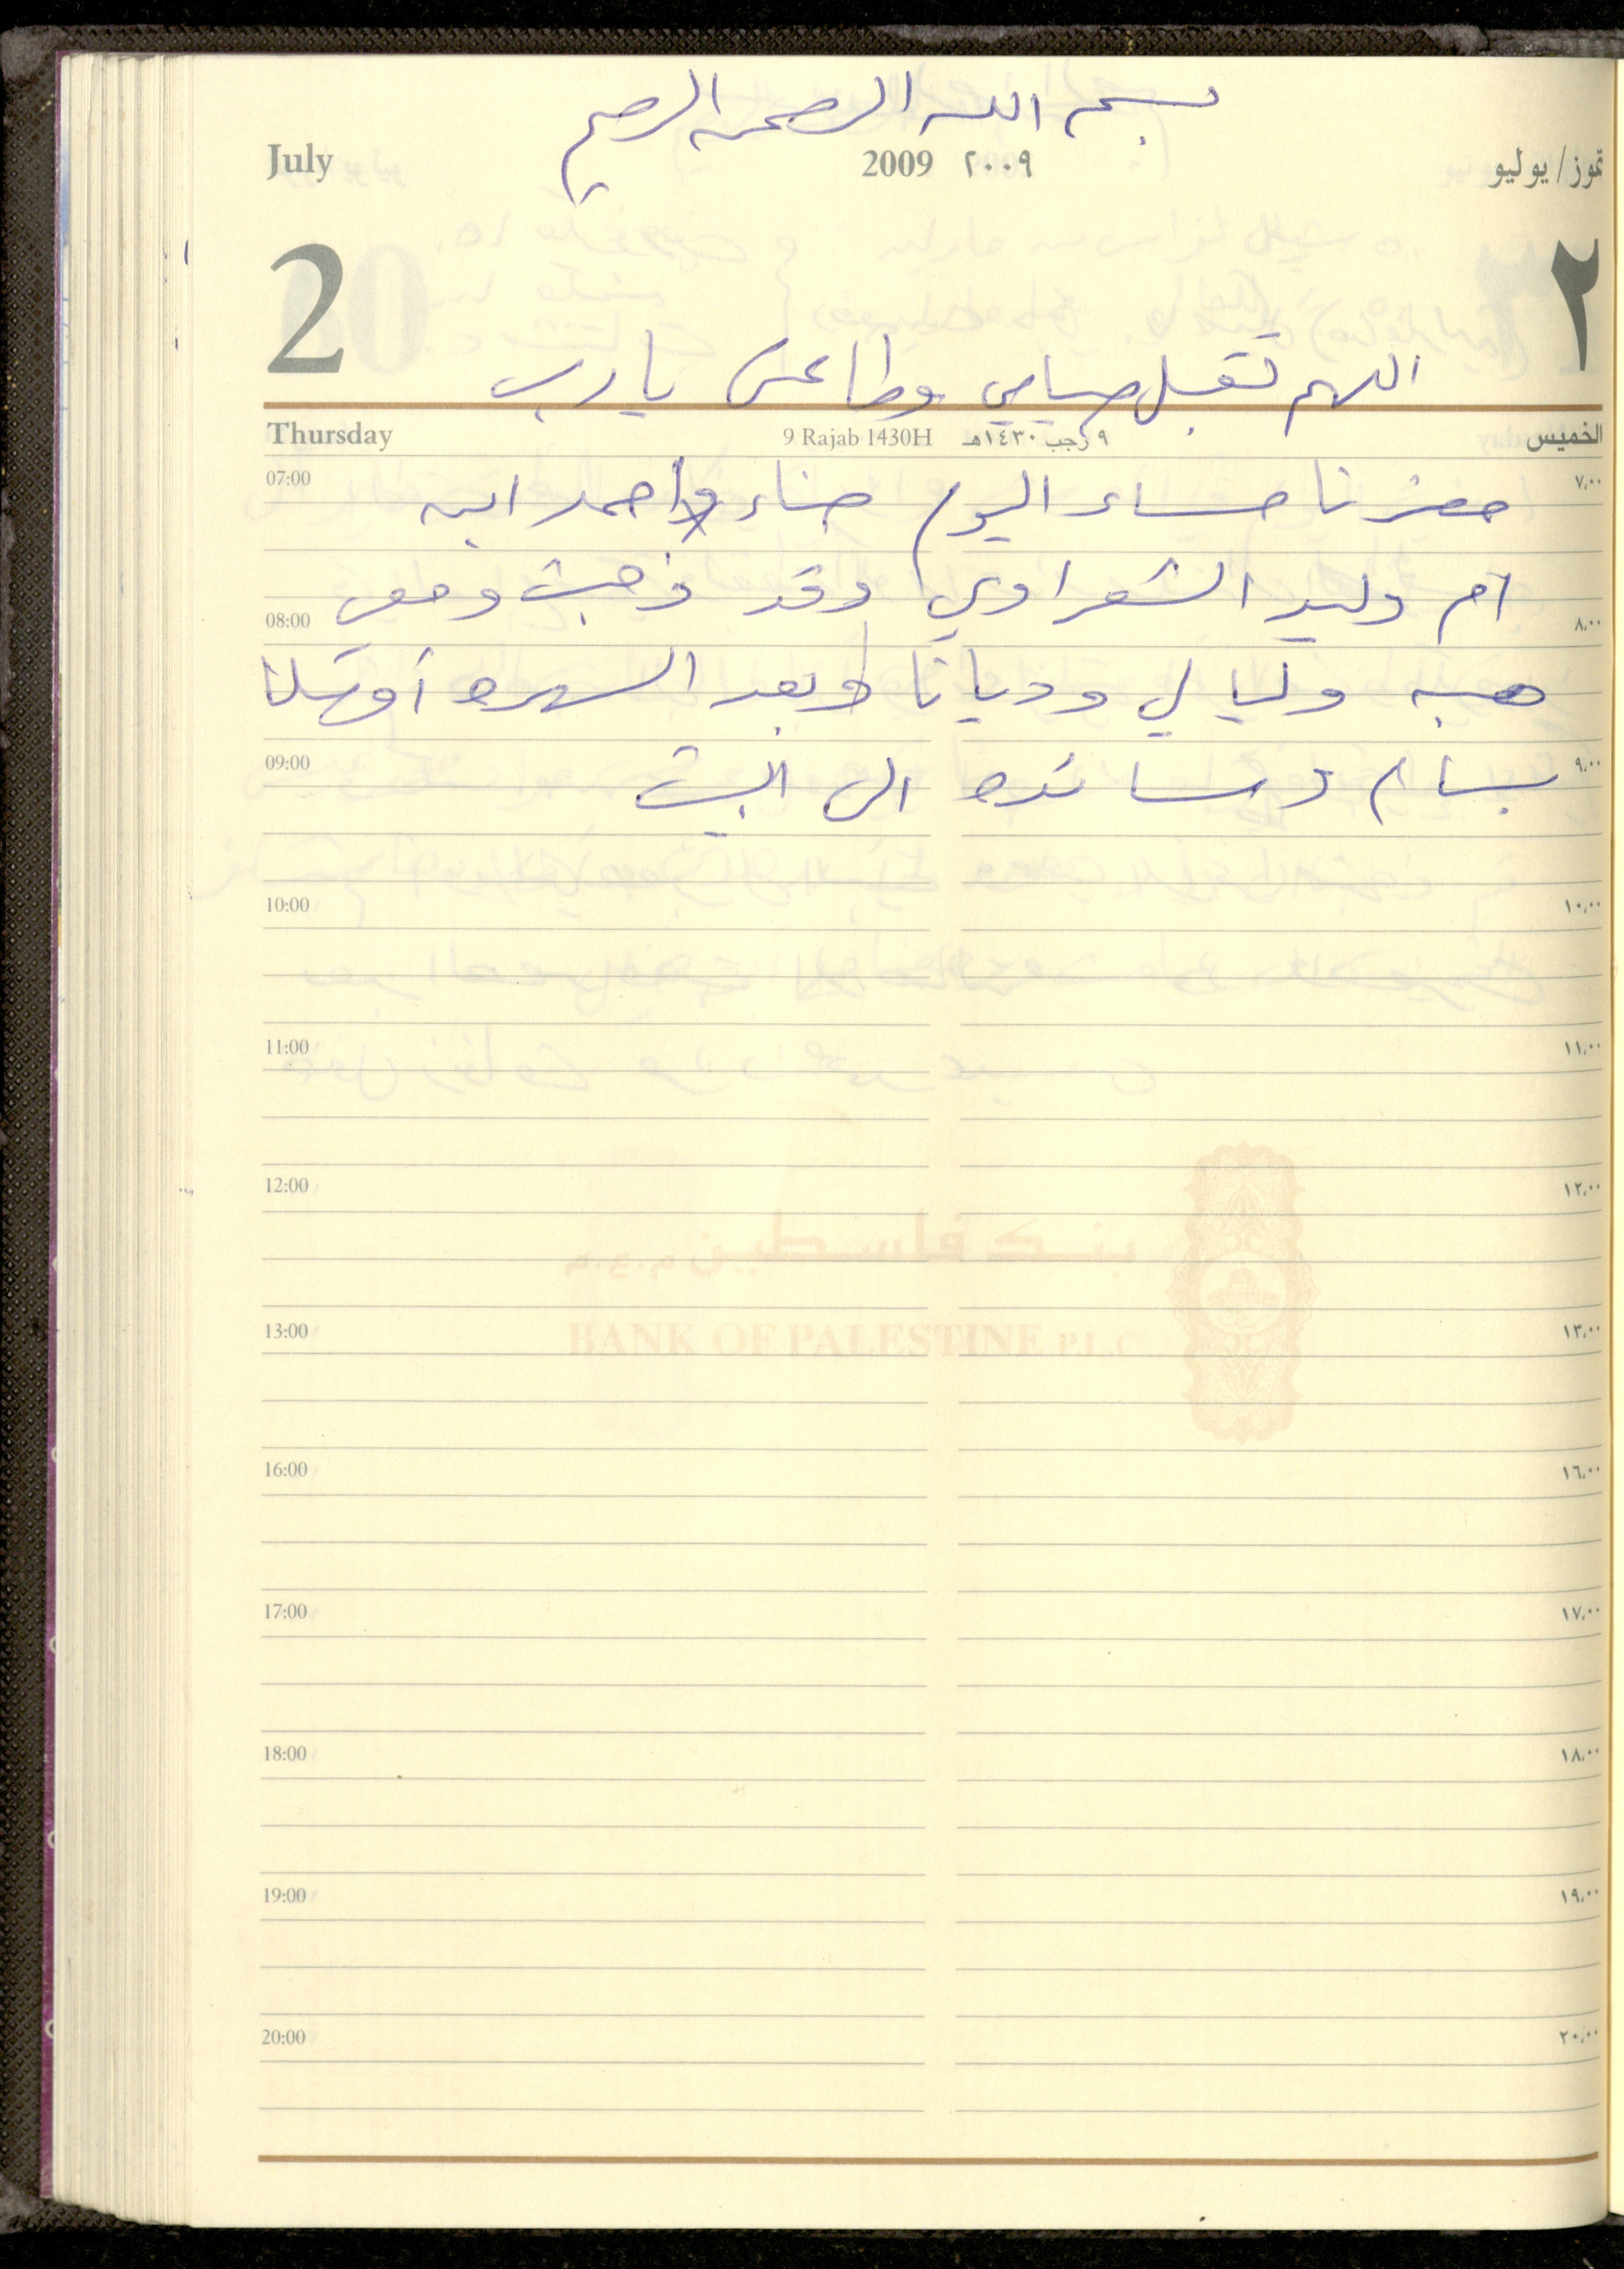 بسم الله الرحمن الرحيم
July 2009 ٢٠٠٩ تموز/يوليو
2 ٢
اللهم تقبل صيامي وطاعتي يا رب
Thursday 9 Rajab 1430H ٩ رجب ١٤٣٠هـ الخميس
07:00 ٧،٠٠
حضرنا مساء اليوم حناء احمد ابن
أم وليد الشعراوي وقد ذهبت ومعي
08:00 ٨،٠٠
هبه وليالي وديانا وبعد السهره أوصلنا
09:00 ٩،٠٠
بسام وسائده الى البيت
10:00 ١٠،٠٠
11:00 ١١،٠٠
12:00 ١٢،٠٠
بنك فلسطين م.ع.م
BANK OF PALESTINE P.L.C
13:00 ١٣،٠٠
16:00 ١٦،٠٠
17:00 ١٧،٠٠
18:00 ١٨،٠٠
19:00 ١٩،٠٠
20:00 ٢٠،٠٠